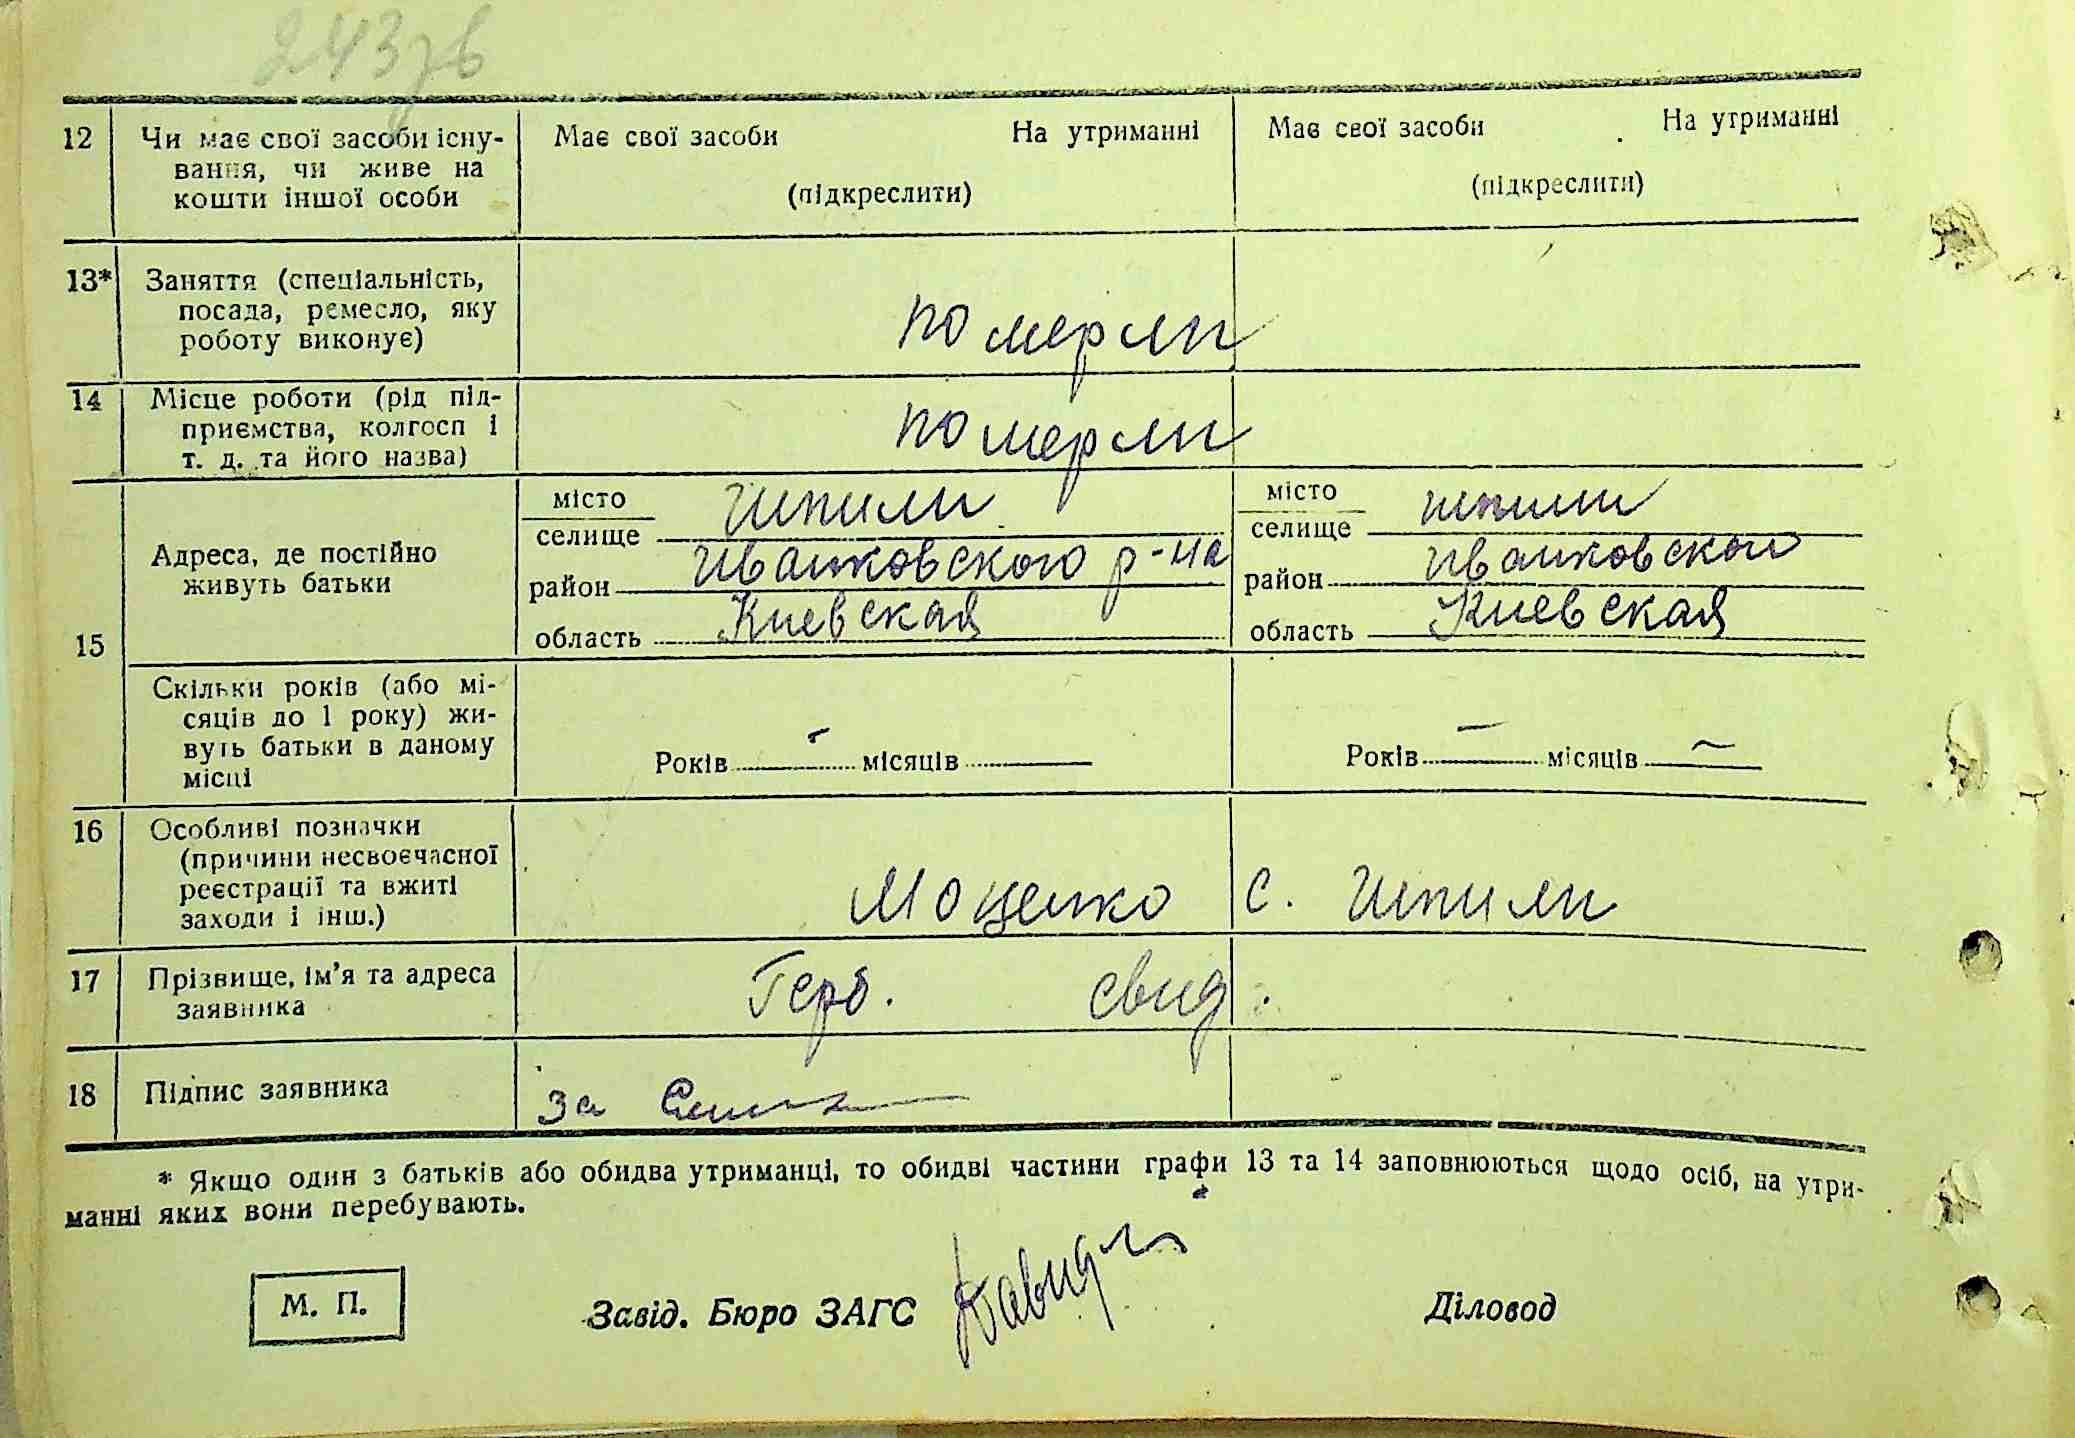 243зв
12 Чи має свої засоби існу- Має свої засоби На утриманні Має свої засоби На утриманні
вання, чи живе на (підкреслити) (підкреслити)
кошти іншої особи
13* Заняття (спеціальність,
посада, ремесло, яку померли
роботу виконує)
14 Місце роботи (рід під-
приємства, колгосп і померли
т. д. та його назва)
15 Адреса, де постійно
живуть батьки
місто
селище Шпили
район Иванковского р-на
область Киевская
місто
селище Шпили
район Иванковской
область Киевская
Скільки років (або мі-
сяців до 1 року) жи-
вуть батьки в даному
місці
Років - місяців Років - місяців -
16 Особливі позначки
(причини несвоєчасної
реєстрації та вжиті
заходи і інш.)
Моценко с. Шпили
17 Прізвище, ім'я та адреса
заявника
Герб. свид.
18 Підпис заявника за
* Якщо один з батьків або обидва утриманці, то обидві частини графи 13 та 14 заповнюються щодо осіб, на утри-
манні яких вони перебувають.
М. П. Завід. Бюро ЗАГС Діловод